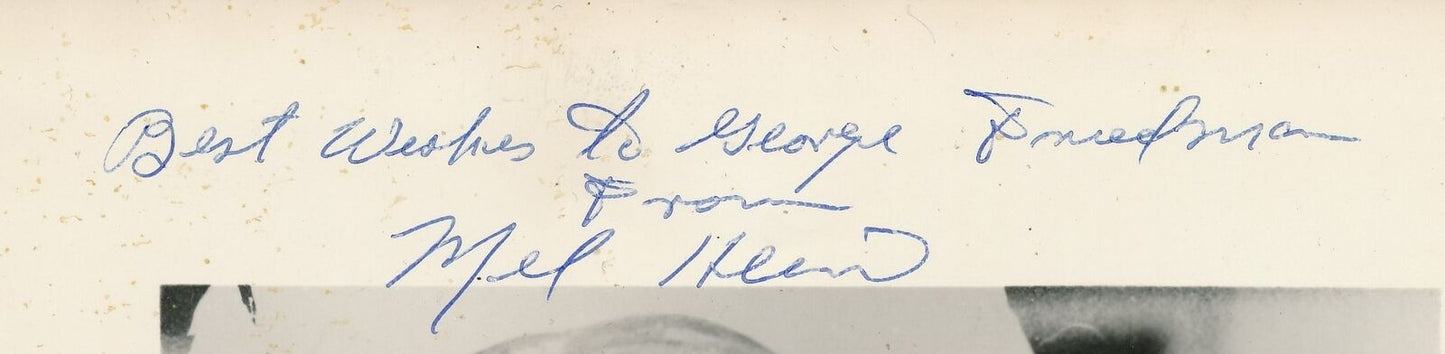 Best Wishes to George Friedman
From
Mel Hein